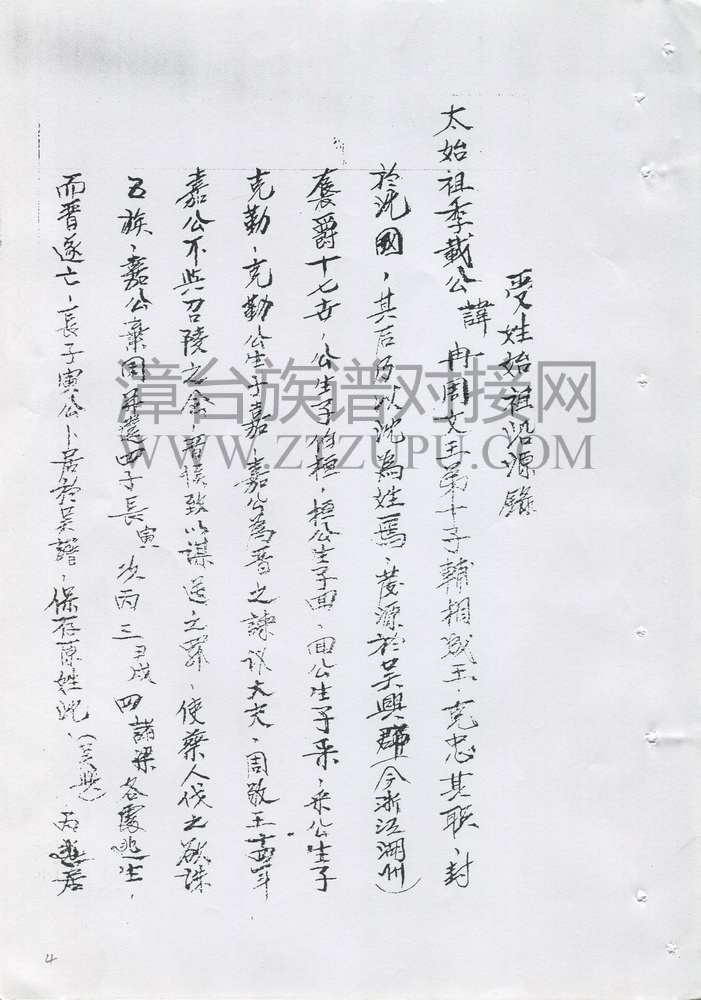 受姓始祖沿源錄
太始祖季載公諱冉周文王第十子輔相成王、克忠其职、封
於沈國，其后仍以沈為姓焉、發源於吴興群(今浙江湖州)
袞爵十七世，公生子伯桓，桓公生子回、回公生子釆，釆公生子
克勤，克勤公生子嘉、嘉公為晋之諫议大夫、周敬王十四年、
嘉公不與召陵之会，晋侯致以謀逆之罪、使蔡人伐之欲誅
族、嘉公棄国 四子長寅次丙三 四諸梁各處逃生，
而晋遂亡、長子寅公卜居於吴 、保存原姓沈、(吴興)丙 居
漳台族谱对接网
WWW.ZTZUPU.COM
4